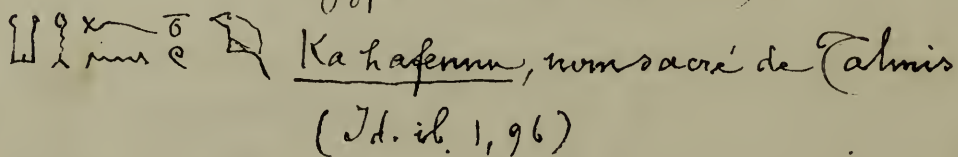 Ka hafennu, nom sacré de Talmis
(Id. ib. 1, 96)